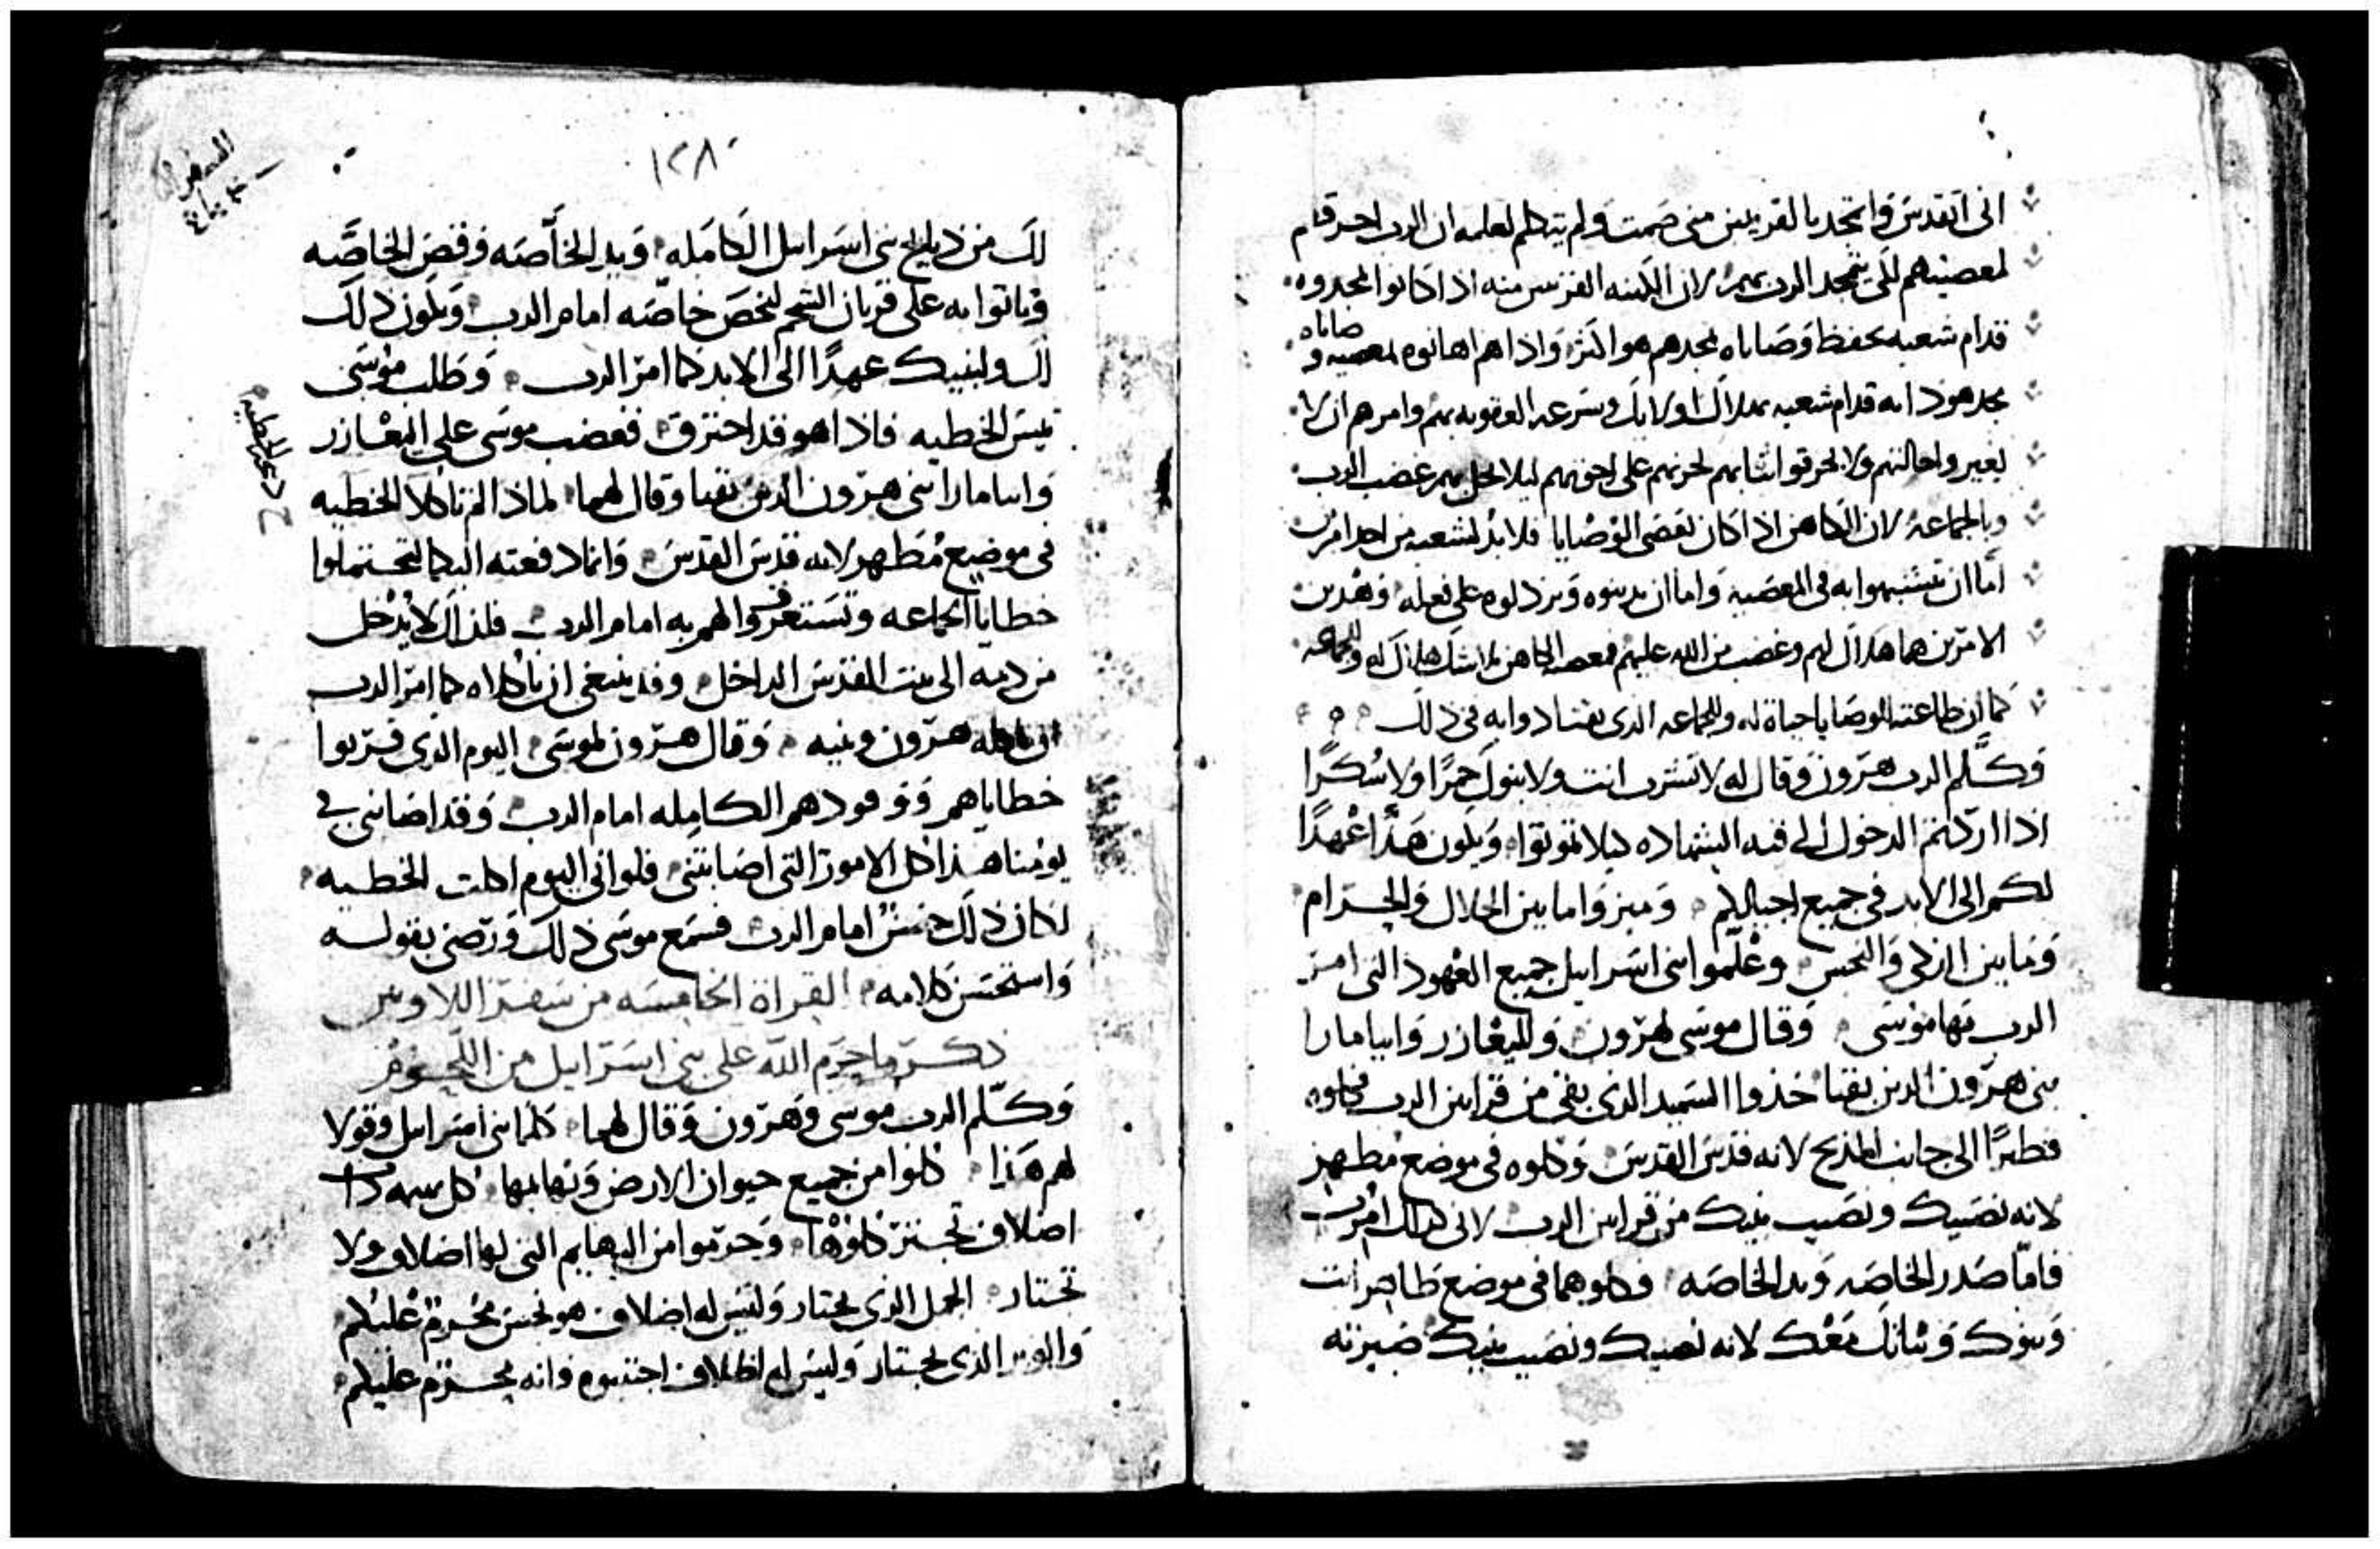 اني اتقدس واتمجد بالقريبين مني صمت ولم يتكلم لعلمه ان الرب احرقهم
لمعصيتهم لكي يتمجد الرب بهم لان الكهنه القريبين منه اذا كانوا يمجدوه
قدام شعبه بحفظ وصاياه مجدهم هو اكثر واذا هم اهانوه بمعصية وصاياه
مجد هو ذاته قدام شعبه بهلاك اولايك وسرعه العقوبه بهم وامرهم ان لا
يغيروا حالتهم ولا يخرقوا ثيابهم لحزنهم على اخوتهم ليلا يحل بهم غضب الرب
وبالجماعه لان الكاهن اذا كان يعصى الوصايا فلابد لشعبه من احد امرين
اما ان يتشبهوا به في المعصيه واما ان يدينوه ويرذلوه على فعله وهذين
الامرين هما هلاك لهم وغضب من الله عليهم فمعصية الكاهن هلاك له وللجماعه
كما ان طاعته للوصايا حياة له وللجماعه الذي يقتادوا به في ذلك
وكلم الرب هرون وقال له لا تشرب انت ولا بنوك خمرًا ولا سُكرًا
اذا اردتم الدخول الى قبه الشهاده ليلا تموتوا ويكون هذا عهدًا
لكم الى الابد في جميع اجيالكم وميزوا ما بين الحلال والحرام
وما بين الزكي والنجس وعلموا بني اسراييل جميع العهود التي امر
الرب بها موسى وقال موسى لهرون ولليعازر وايتامارا
بني هرون الذين بقيا خذوا السميد الذي بقي من قرابين الرب فكلوه
فطيرًا الى جانب المذبح لانه قدس القدس وكلوه في موضع مطهر
لانه نصيبك ونصيب بنيك من قرابين الرب لاني كذلك امرت
فاما صدر الخاصه ويد الخاصه فكلوهما في موضع طاهر انت
وبنوك وبناتك معك لانه نصيبك ونصيب بنيك صيرته
١٢٨
السفر
لك من ذبايح بني اسراييل الكامله ويد الخاصه وقص الخاصه
وياتوا به على قربان الشحم ليخص خاصه امام الرب ويكون ذلك
لك ولبنيك عهدًا الى الابد كما امر الرب وطلب موسى
تيس الخطيه فاذا هو قد احترق فغضب موسى على اليعازر
وايتامارا بني هرون الذين بقيا وقال لهما لماذا لم تاكلا الخطيه
في موضع مطهر لانه قدس القدس وانما دفعته اليكما لتحتملوا
خطايا الجماعه وتستغفروا لهم به امام الرب فلذلك لا يدخل
من دمه الى بيت القدس الداخل وقد ينبغي ان ياكلاه كما امر الرب
ان ياكله هرون وبنيه وقال هرون لموسى اليوم الذي قربوا
خطاياهم ووقودهم الكامله امام الرب وقد اصابني في
يومنا هذا كل الامور التي اصابتني فلو اني اليوم اكلت الخطيه
لكان ذلك حسن امام الرب فسمع موسى ذلك ورضي بقوله
واستحسن كلامه القراة الخامسه من سفر اللاويين
ذكر ما حرم الله على بني اسراييل من اللحوم
وكلم الرب موسى وهرون وقال لهما كلما بني اسراييل وقولا
لهم هذا كلوا من جميع حيوان الارض وبهايمها كل بهيمه ذات
اضلاف تجتر كلوها وحرموا من البهايم التي لها اضلاف ولا
تجتار الجمل الذي يجتار وليس له اضلاف هو نجس محرم عليكم
والوبر الذي يجتار وليس له اظلاف اجتنبوه فانه محرم عليكم